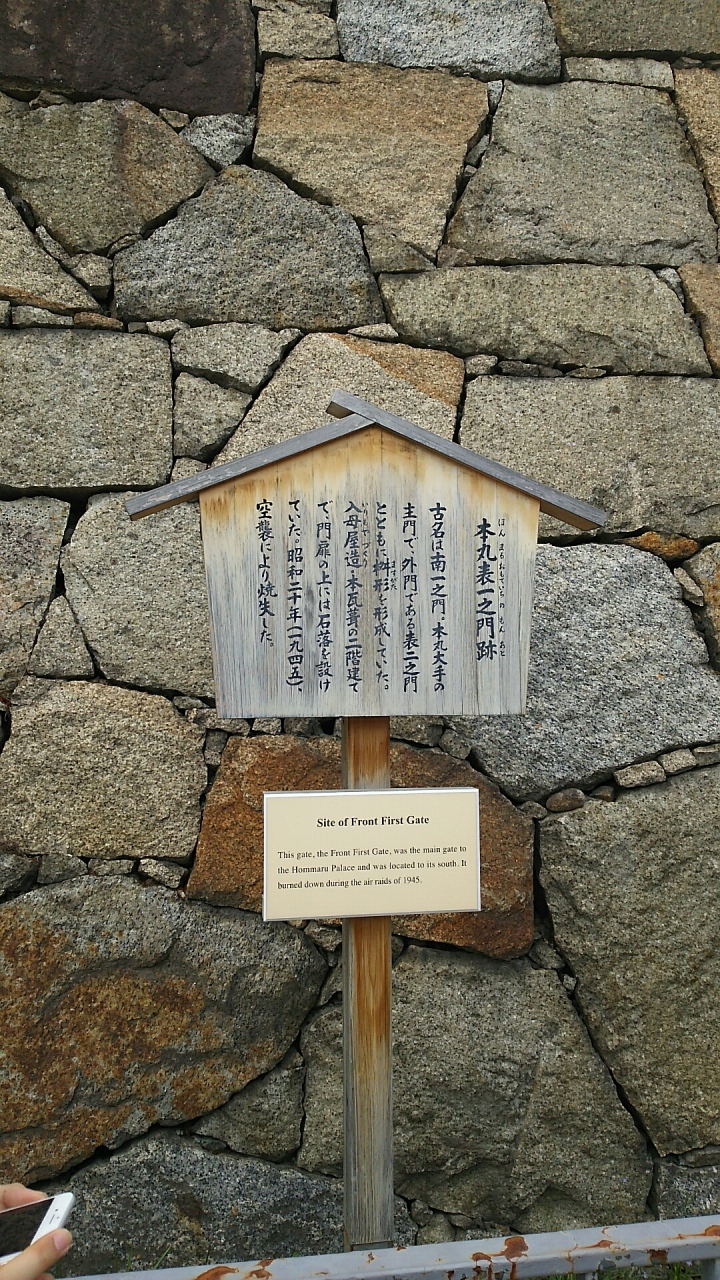 本丸表一之門跡
ほんまるおもていちのもんあと
古名は南一之門。本丸大手の
主門で、外門である表二之門
とともに桝形を形成していた。
ますがた
入母屋造・本瓦葺の二階建て
いりもやづくり
で、門扉の上には石落を設け
ていた。昭和二十年(一九四五)、
空襲により焼失した。
Site of Front First Gate
This gate, the Front First Gate, was the main gate to
the Hommaru Palace and was located to its south. It
burned down during the air raids of 1945.